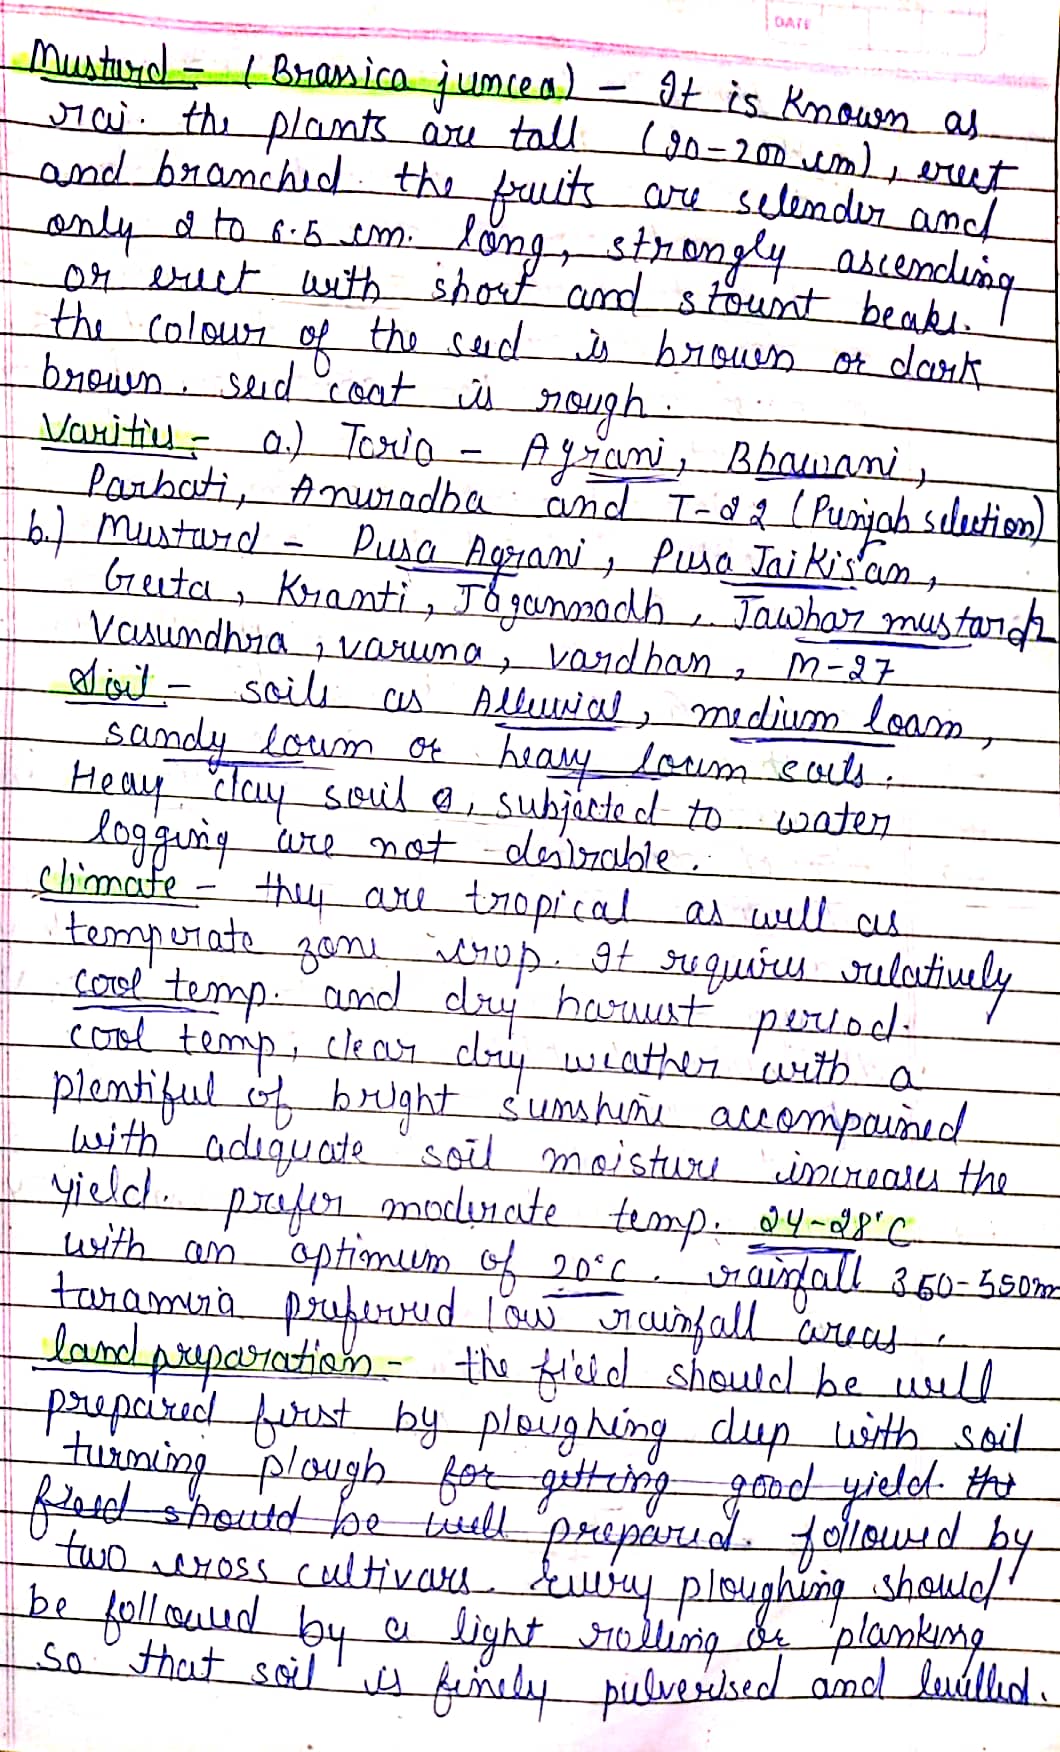 DATE
Mustard - (Brassica juncea) - It is known as
rai. the plants are tall (90-200 cm), erect
and branched. the fruits are selender and
only 2 to 6.5 cm. long, strongly ascending
or erect with short and stount beaks.
the colour of the seed is brown or dark
brown. seed coat is rough.
Varities - a.) Toria - Agrani, Bhawani,
Parbati, Anuradha and T-22 (Punjab selection)
b.) Mustard - Pusa Agrani, Pusa Jai Kisan,
Geeta, Kranti, Jagannadh, Jawhar mustard
Vasundhra, varuna, vardhan, M-27
Soil - soils as Alluvial, medium loam,
sandy loam or heavy loam soils.
Heay clay soils, subjected to water
logging are not desirable.
Climate - they are tropical as well as
temperate zone crop. It requires relatively
cool temp. and dry harvest period.
cool temp, clear dry weather with a
plentiful of bright sunshine accompained
with adequate soil moisture increases the
yield. prefer moderate temp. 24-28°C
with an optimum of 20°C. rainfall 350-550mm
taramira preferred low rainfall areas.
land preparation - the field should be well
prepaired first by ploughing deep with soil
turning plough for getting good yield. the
field should be well prepared. followed by
two cross cultivars. Every ploughing should
be followed by a light rolling or planking
so that soil is finely pulverised and levelled.